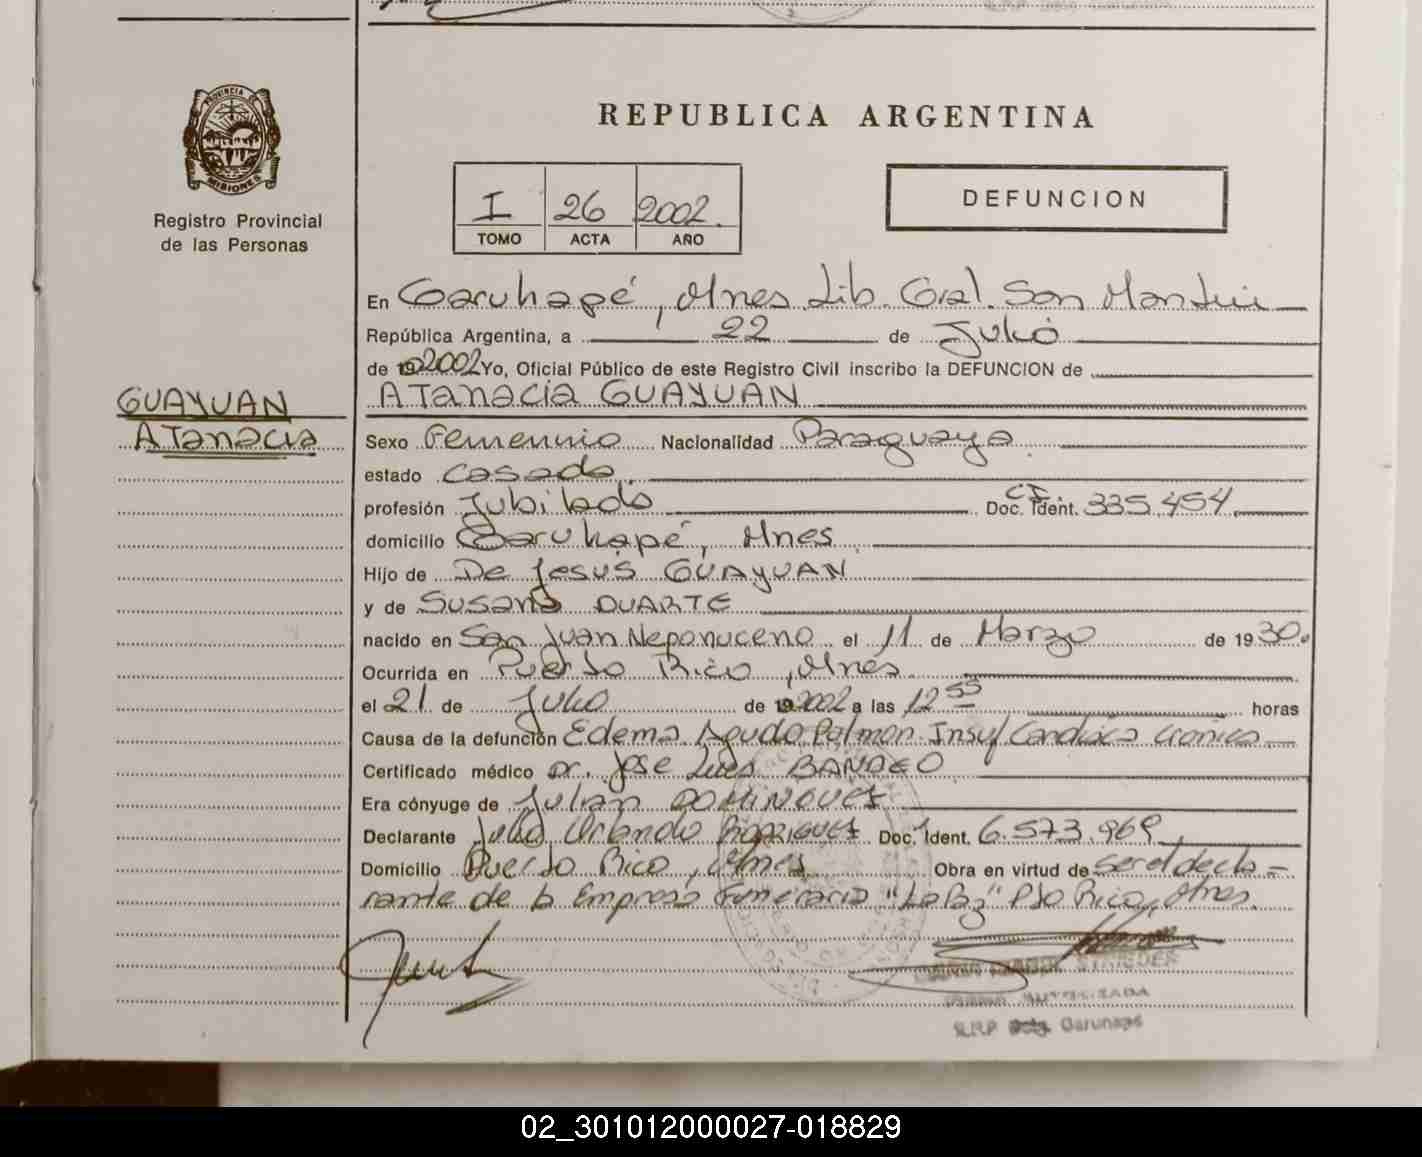 PROVINCIA
MISIONES
Registro Provincial
de las Personas
REPUBLICA ARGENTINA
I 26 2002.
TOMO ACTA AÑO
DEFUNCION
En Garuhapé, Mnes Lib. Gral. San Martin
República Argentina, a 22 de Julio
de 19 2002 Yo, Oficial Público de este Registro Civil inscribo la DEFUNCION de
ATanacia GUAYUAN
GUAYUAN
ATanacia
Sexo Femenino Nacionalidad Paraguaya
estado casada
profesión Jubilada Doc. Ident. C.I. 335.454
domicilio Garuhapé, Mnes
Hijo de De Jesus GUAYUAN
y de Susana DUARTE
nacido en San Juan Neponuceno el 11 de Marzo de 19 30.
Ocurrida en Puerto Rico, Mnes
el 21 de Julio de 19 2002 a las 12 55 horas
Causa de la defunción Edema Agudo Pulmon Insuf Cardiaca cronica
Certificado médico Dr. Jose Luis BANDEO
Era cónyuge de Julian DOMINGUEZ
Declarante Julio Orlando RODRIGUEZ Doc. Ident. 6.573.969
Domicilio Puerto Rico, Mnes Obra en virtud de ser el decla-
rante de la Empresa Funeraria "La Paz" Pto Rico, Mnes.
AUTORIZADA
Garuhape
02_301012000027-018829